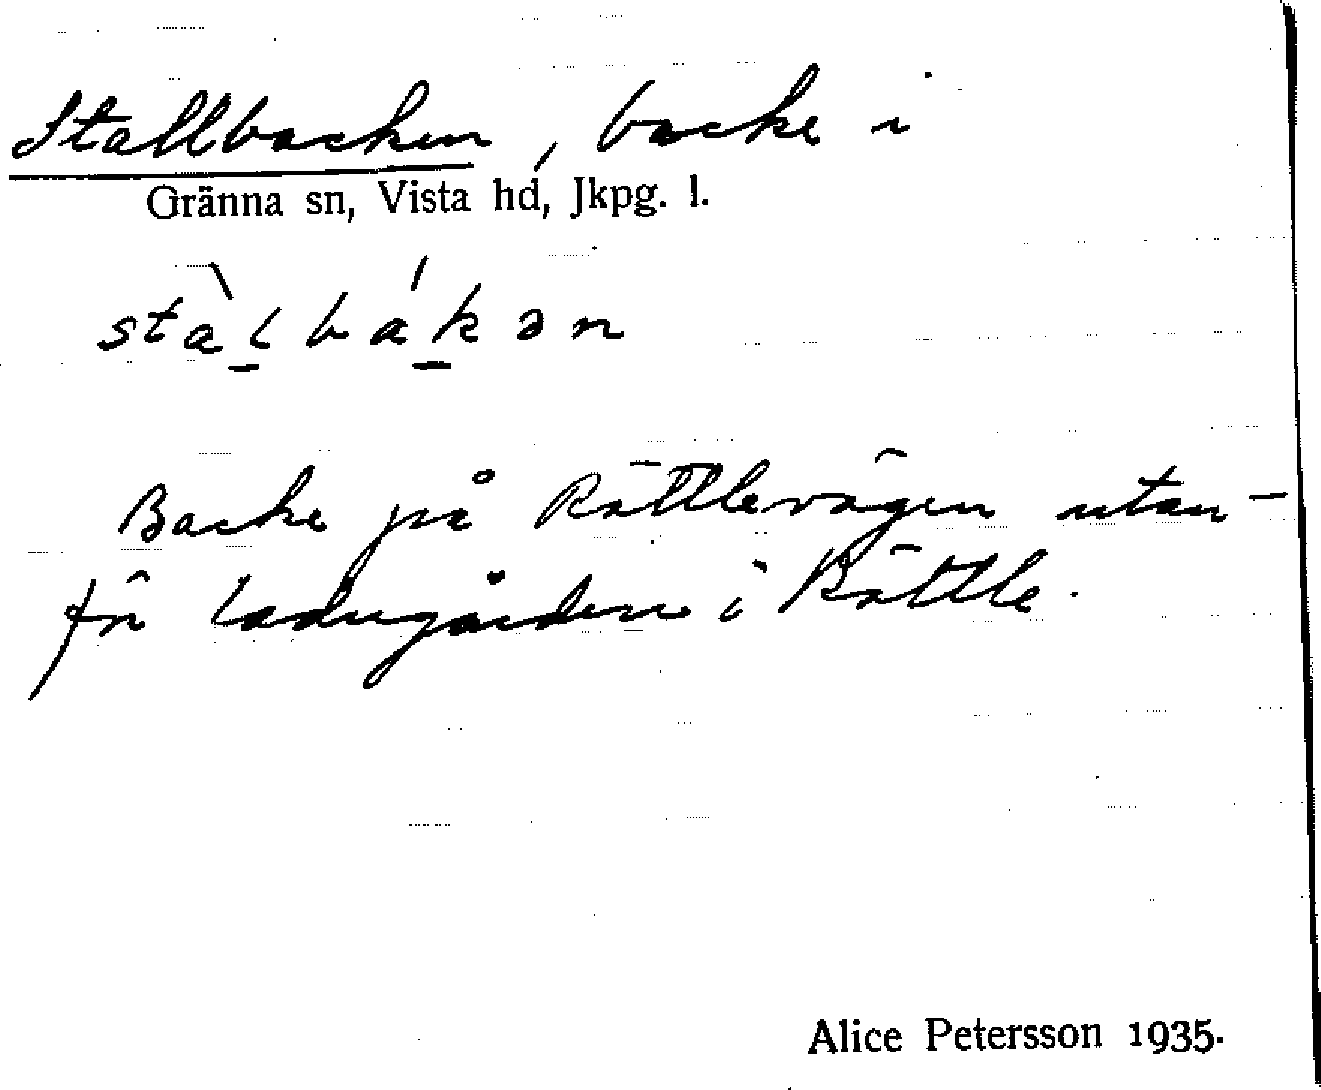 Stallbacken, backe i
Gränna sn, Vista hd, Jkpg. l.
stàlbákən
Backe på Röttlevägen utan-
för ladugården i Röttle.
Alice Petersson 1935.